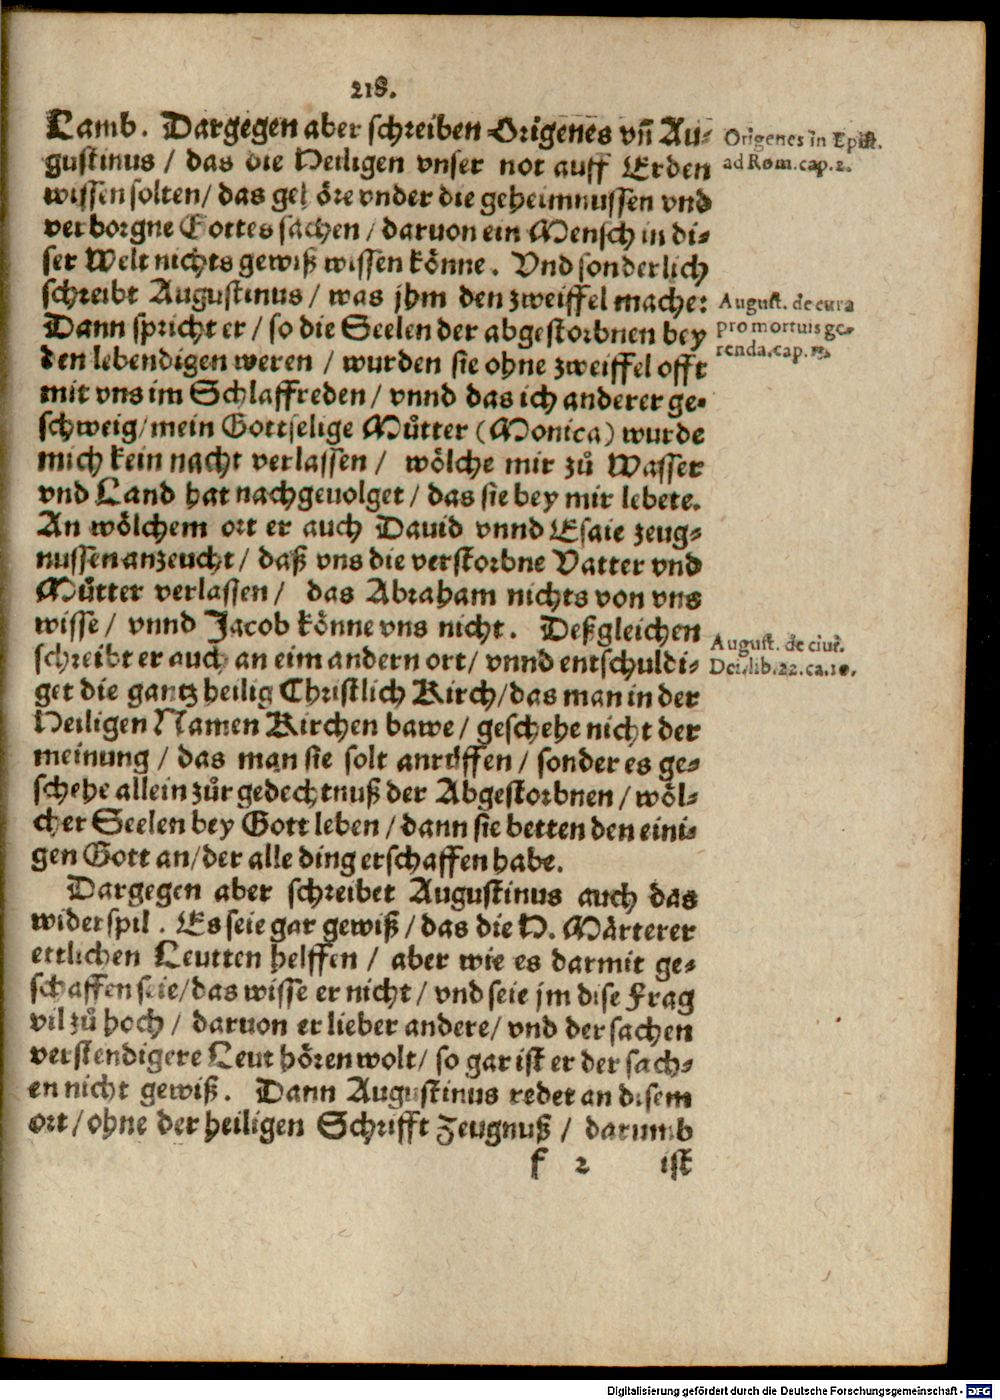 218.
Lamb. Dargegen aber schreiben Origenes vñ Au-
gustinus / das die Heiligen vnser not auff Erden
wissen solten / das gehöre vnder die geheimnussen vnd
verborgne Gottes sachen / daruon ein Mensch in di-
ser Welt nichts gewiß wissen könne. Vnd sonderlich
schreibt Augustinus / was jhm den zweiffel mache:
Dann spricht er / so die Seelen der abgestorbnen bey
den lebendigen weren / wurden sie ohne zweiffel offt
mit vns im Schlaff reden / vnnd das ich anderer ge-
schweig / mein Gottselige Můtter (Monica) wurde
mich kein nacht verlassen / wölche mir zů Wasser
vnd Land hat nachgeuolget / das sie bey mir lebete.
An wölchem ort er auch Dauid vnnd Esaie zeug-
nussen anzeucht / daß vns die verstorbne Vatter vnd
Můtter verlassen / das Abraham nichts von vns
wisse / vnnd Jacob könne vns nicht. Deßgleichen
schreibt er auch an eim andern ort / vnnd entschuldi-
get die gantz heilig Christlich Kirch / das man in der
Heiligen Namen Kirchen bawe / geschehe nicht der
meinung / das man sie solt anrůffen / sonder es ge-
schehe allein zůr gedechtnuß der Abgestorbnen / wöl-
cher Seelen bey Gott leben / dann sie betten den eini-
gen Gott an / der alle ding erschaffen habe.
Dargegen aber schreibet Augustinus auch das
widerspil. Es seie gar gewiß / das die H. Märterer
ettlichen Leutten helffen / aber wie es darmit ge-
schaffen seie / das wisse er nicht / vnd seie jm dise Frag
vil zů hoch / daruon er lieber andere / vnd der sachen
verstendigere Leut hören wolt / so gar ist er der sach-
en nicht gewiß. Dann Augustinus redet an disem
ort / ohne der heiligen Schrifft Zeugnuß / darumb
f 2 ist
Origenes in Epist.
ad Rom. cap. 2.
August. de cura
pro mortuis ge-
renda. cap.
August. de ciuit.
Dei. lib. 22. ca. 10.
Digitalisierung gefördert durch die Deutsche Forschungsgemeinschaft - DFG